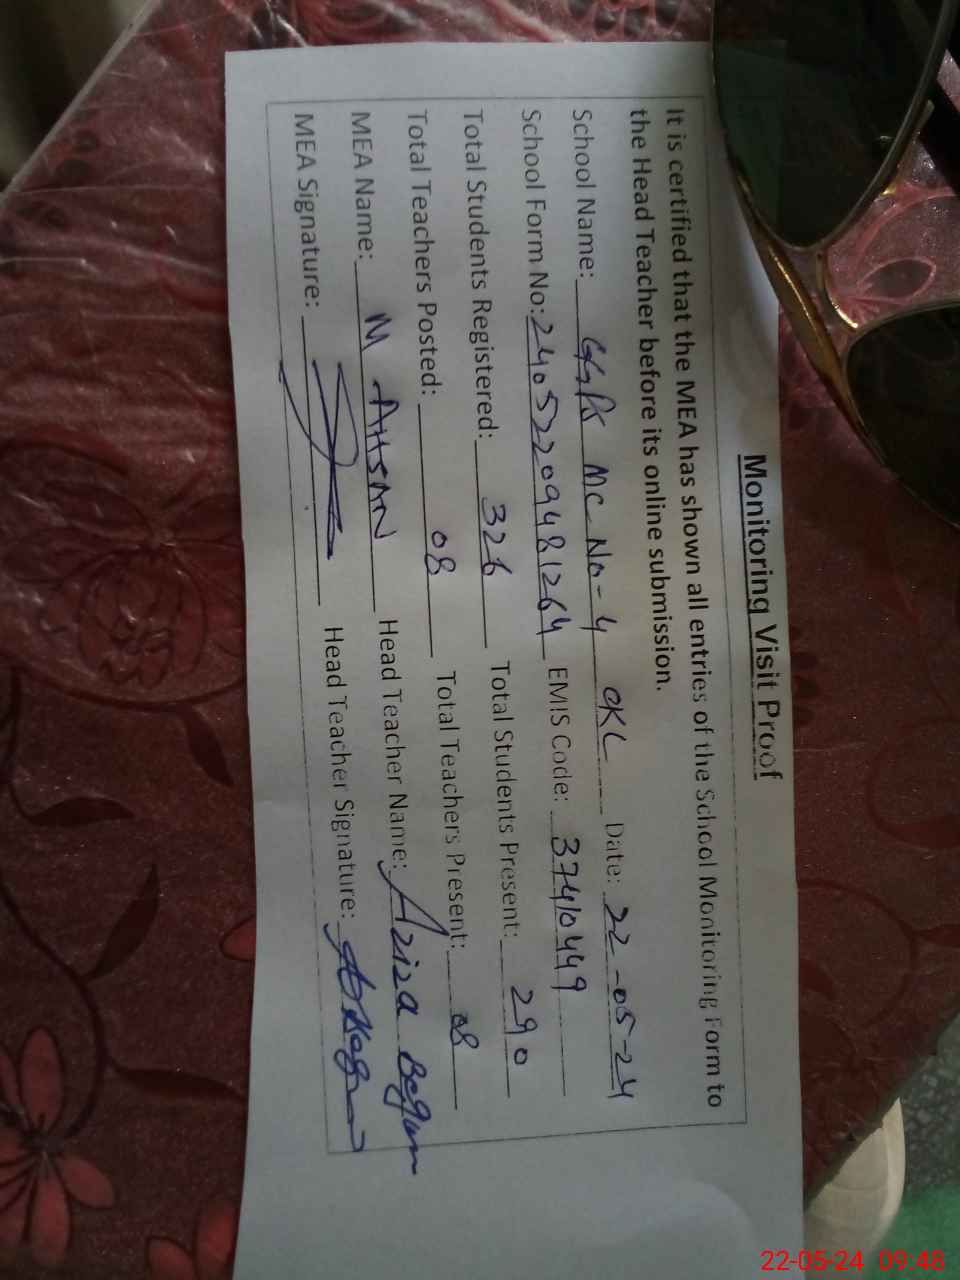 Monitoring Visit Proof
It is certified that the MEA has shown all entries of the School Monitoring Form to
the Head Teacher before its online submission.
School Name: GGPS MC No-4 OKC Date: 22-05-24
School Form No: 24052209481264 EMIS Code: 37410449
Total Students Registered: 326 Total Students Present: 290
Total Teachers Posted: 08 Total Teachers Present: 08
MEA Name: M AHSAN Head Teacher Name: Aziza Begum
MEA Signature: Head Teacher Signature:
22-05-24 09:48